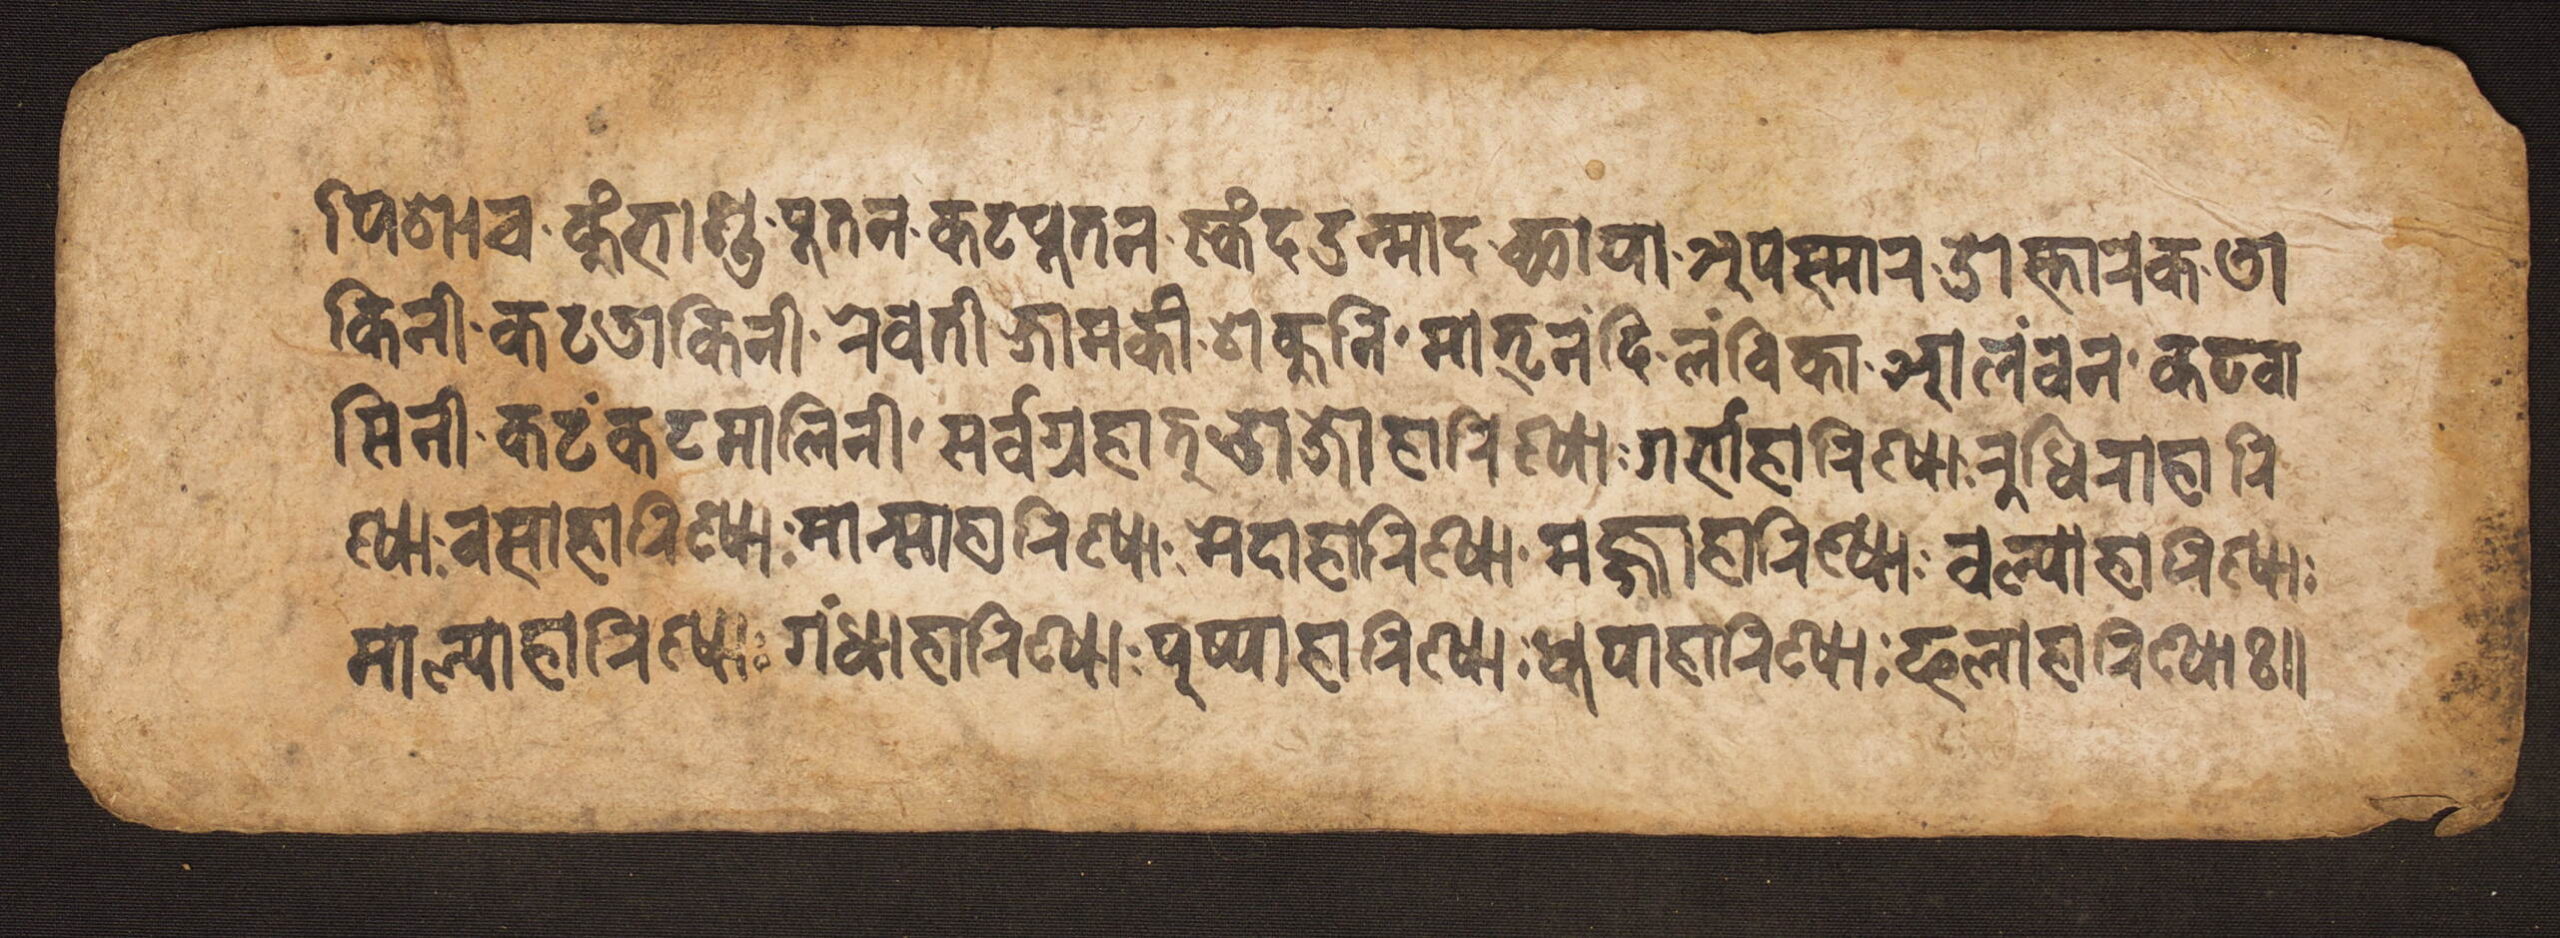 पिशाच · कुंभाण्ड · पुतन · कटपूतन · स्कंद उन्माद · छाया · अपस्मार · ओस्तारक · डा
किनी · कटडाकिनी · रेवती जामकी · शकुनि · मातृनंदि · लंविका · आलंवन · कटवा
सिनी · कटंकटमालिनी · सर्वग्रहात् ओजोहारिण्याः गर्भाहारिण्याः रुधिराहारि
ण्याः वसाहारिण्याः मान्साहारिण्याः मेदाहारिण्याः मज्जाहारिण्याः वल्याहारिण्याः
माल्याहारिण्याः गंधाहारिण्याः पुष्पाहारिण्याः धूपाहारिण्याः फलाहारिण्याः॥